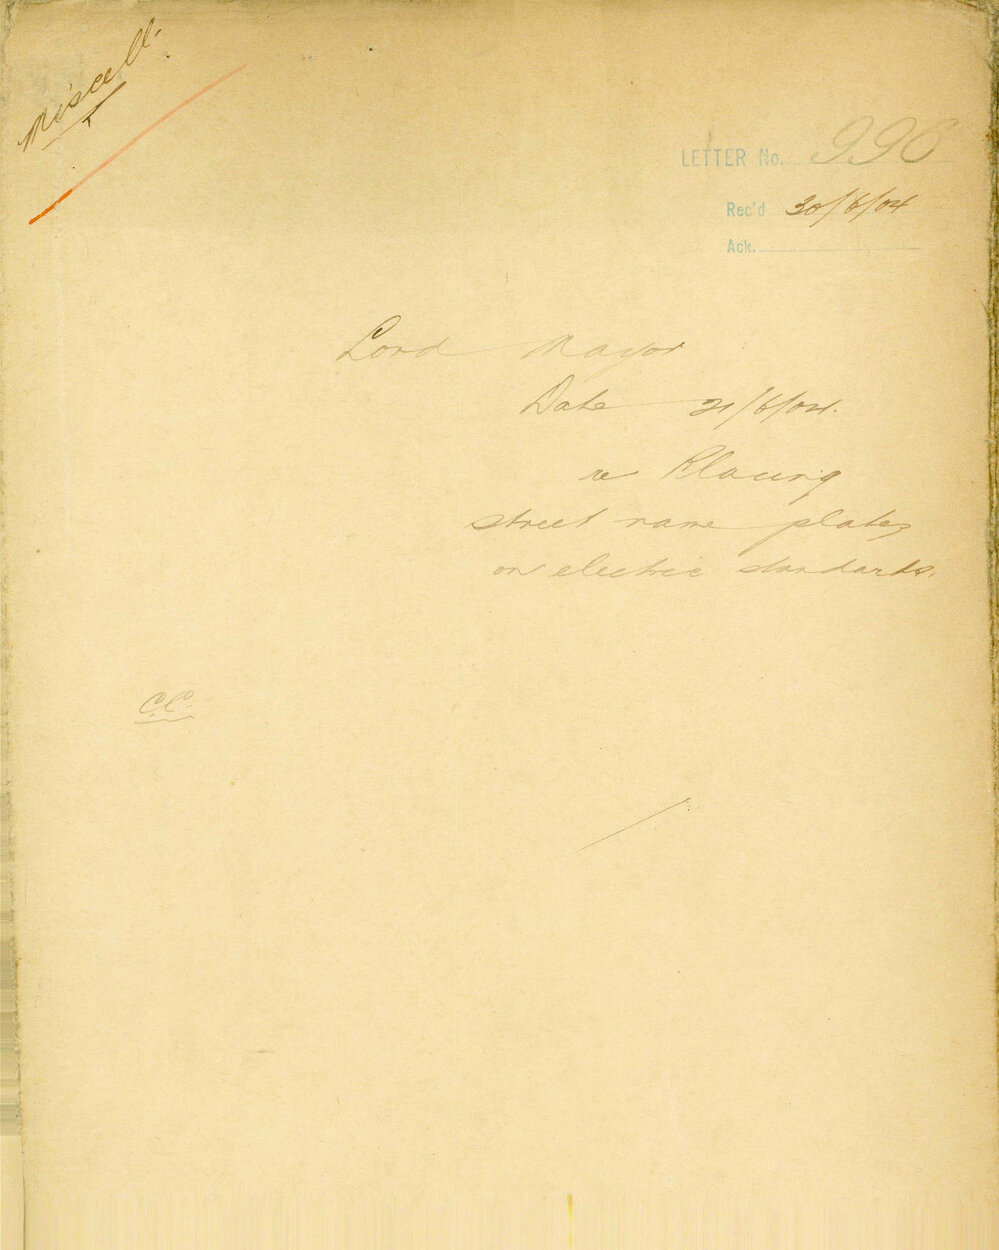 Miscell.
LETTER No. 996
Rec'd 30/6/04
Ack.
Lord Mayor
Date 21/6/04.
re Placing
street name plates
on electric standards.
C.C.